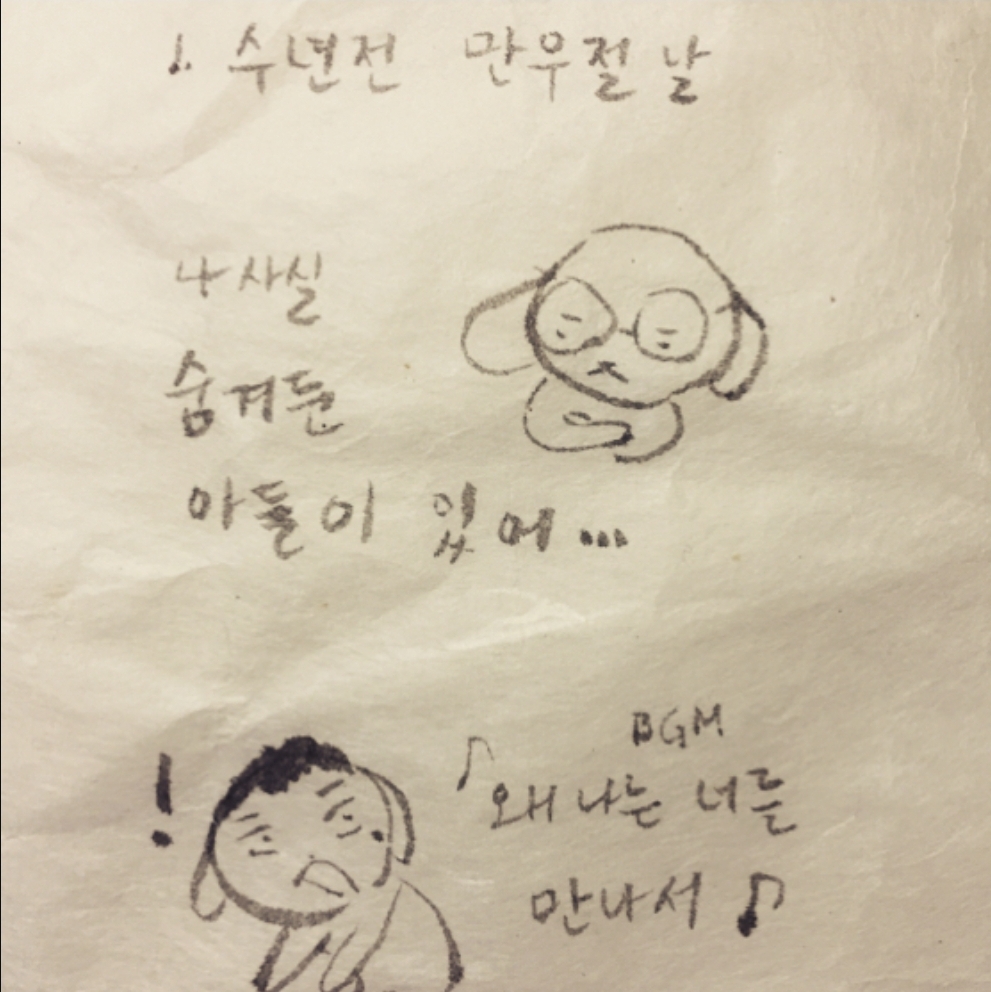 1. 수년전 만우절 날
나 사실
숨겨둔
아들이 있어...
!
BGM
♪ 왜 나는 너를
만나서 ♪